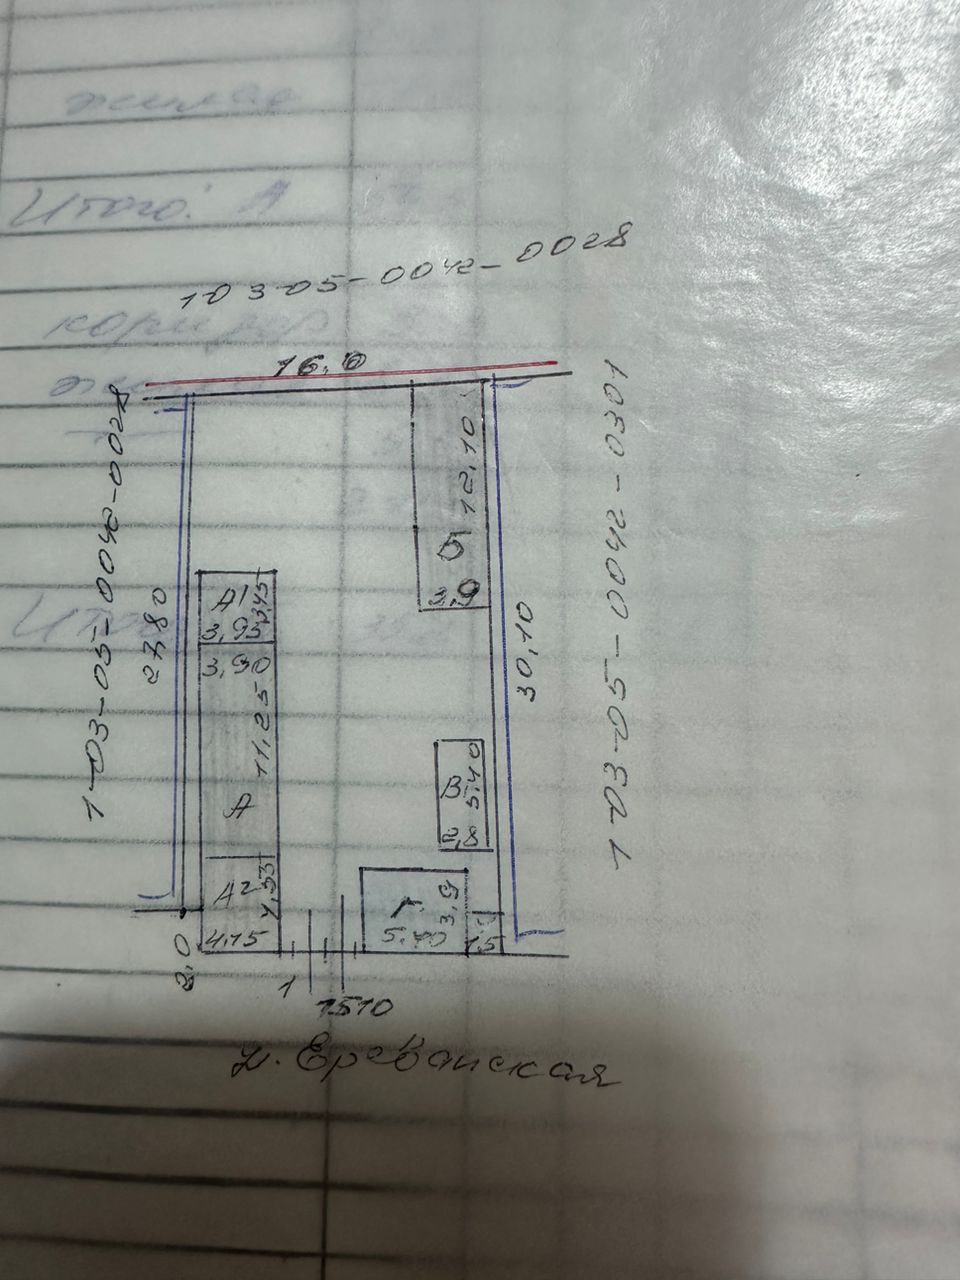 жилая
Итого: А
коридор
10305-0042-0028
16.0
1-03-05-0042-0028
1-03-05-0042-0301
27,80
30,10
12,10
Б
3,9
А1
3,45
3,93
3,90
11,25
А
В
5,40
2,8
А2
4,15
Г
3,9
5.40
1,5
2,0
1
1510
ул. Ереванская